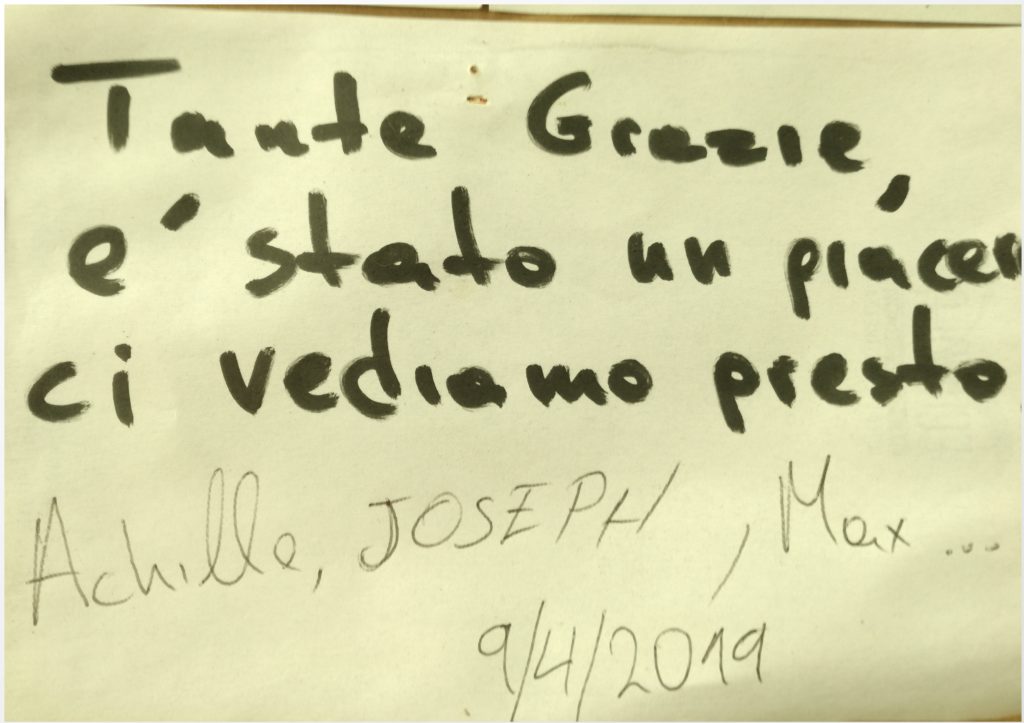 Tante Grazie,
e' stato un piacer
ci vediamo presto
Achille, JOSEPH, Max...
9/4/2019